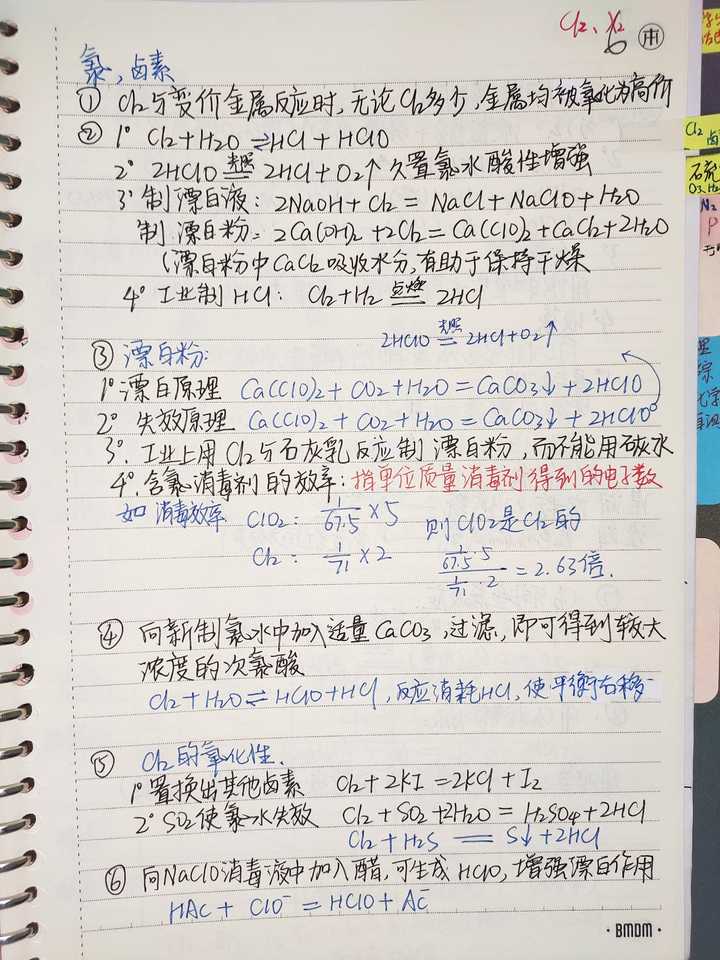 Cl2、X2
6 本
氯,卤素
① Cl2与变价金属反应时,无论Cl2多少,金属均被氧化为高价
② 1° Cl2+H2O ⇌HCl + HClO
2° 2HClO 光照= 2HCl+O2↑ 久置氯水酸性增强
3° 制漂白液: 2NaOH+Cl2 = NaCl+NaClO+H2O
制漂白粉: 2Ca(OH)2 +2Cl2= Ca(ClO)2+CaCl2+2H2O
(漂白粉中CaCl2吸收水分,有助于保持干燥
4° 工业制HCl: Cl2+H2 点燃= 2HCl
2HClO 光照= 2HCl+O2↑
③ 漂白粉:
1° 漂白原理 Ca(ClO)2+CO2+H2O=CaCO3↓+2HClO
2° 失效原理 Ca(ClO)2+CO2+H2O=CaCO3↓+2HClO
3°. 工业上用Cl2与石灰乳反应制漂白粉,而不能用石灰水
4°. 含氯消毒剂的效率:指单位质量消毒剂得到的电子数
如 消毒效率 ClO2: 1/67.5 ×5 则ClO2是Cl2的
Cl2: 1/71 ×2 (1/67.5·5)/(1/71·2) = 2.63倍.
④ 向新制氯水中加入适量CaCO3,过滤,即可得到较大
浓度的次氯酸
Cl2+H2O⇌HClO+HCl,反应消耗HCl,使平衡右移
⑤ Cl2的氧化性.
1° 置换出其他卤素 Cl2+2KI=2KCl+I2
2° SO2使氯水失效 Cl2+SO2+2H2O=H2SO4+2HCl
Cl2+H2S = S↓+2HCl
⑥ 向NaClO消毒液中加入醋,可生成HClO,增强漂白作用
HAc + ClO⁻ = HClO+Ac⁻
·BMDM·
Cl2
卤
石硫
N2
P